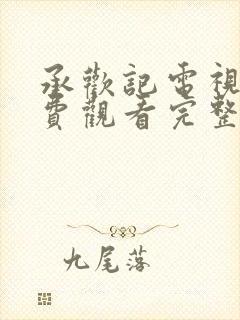 承歡記電視
費觀看完整
九尾落